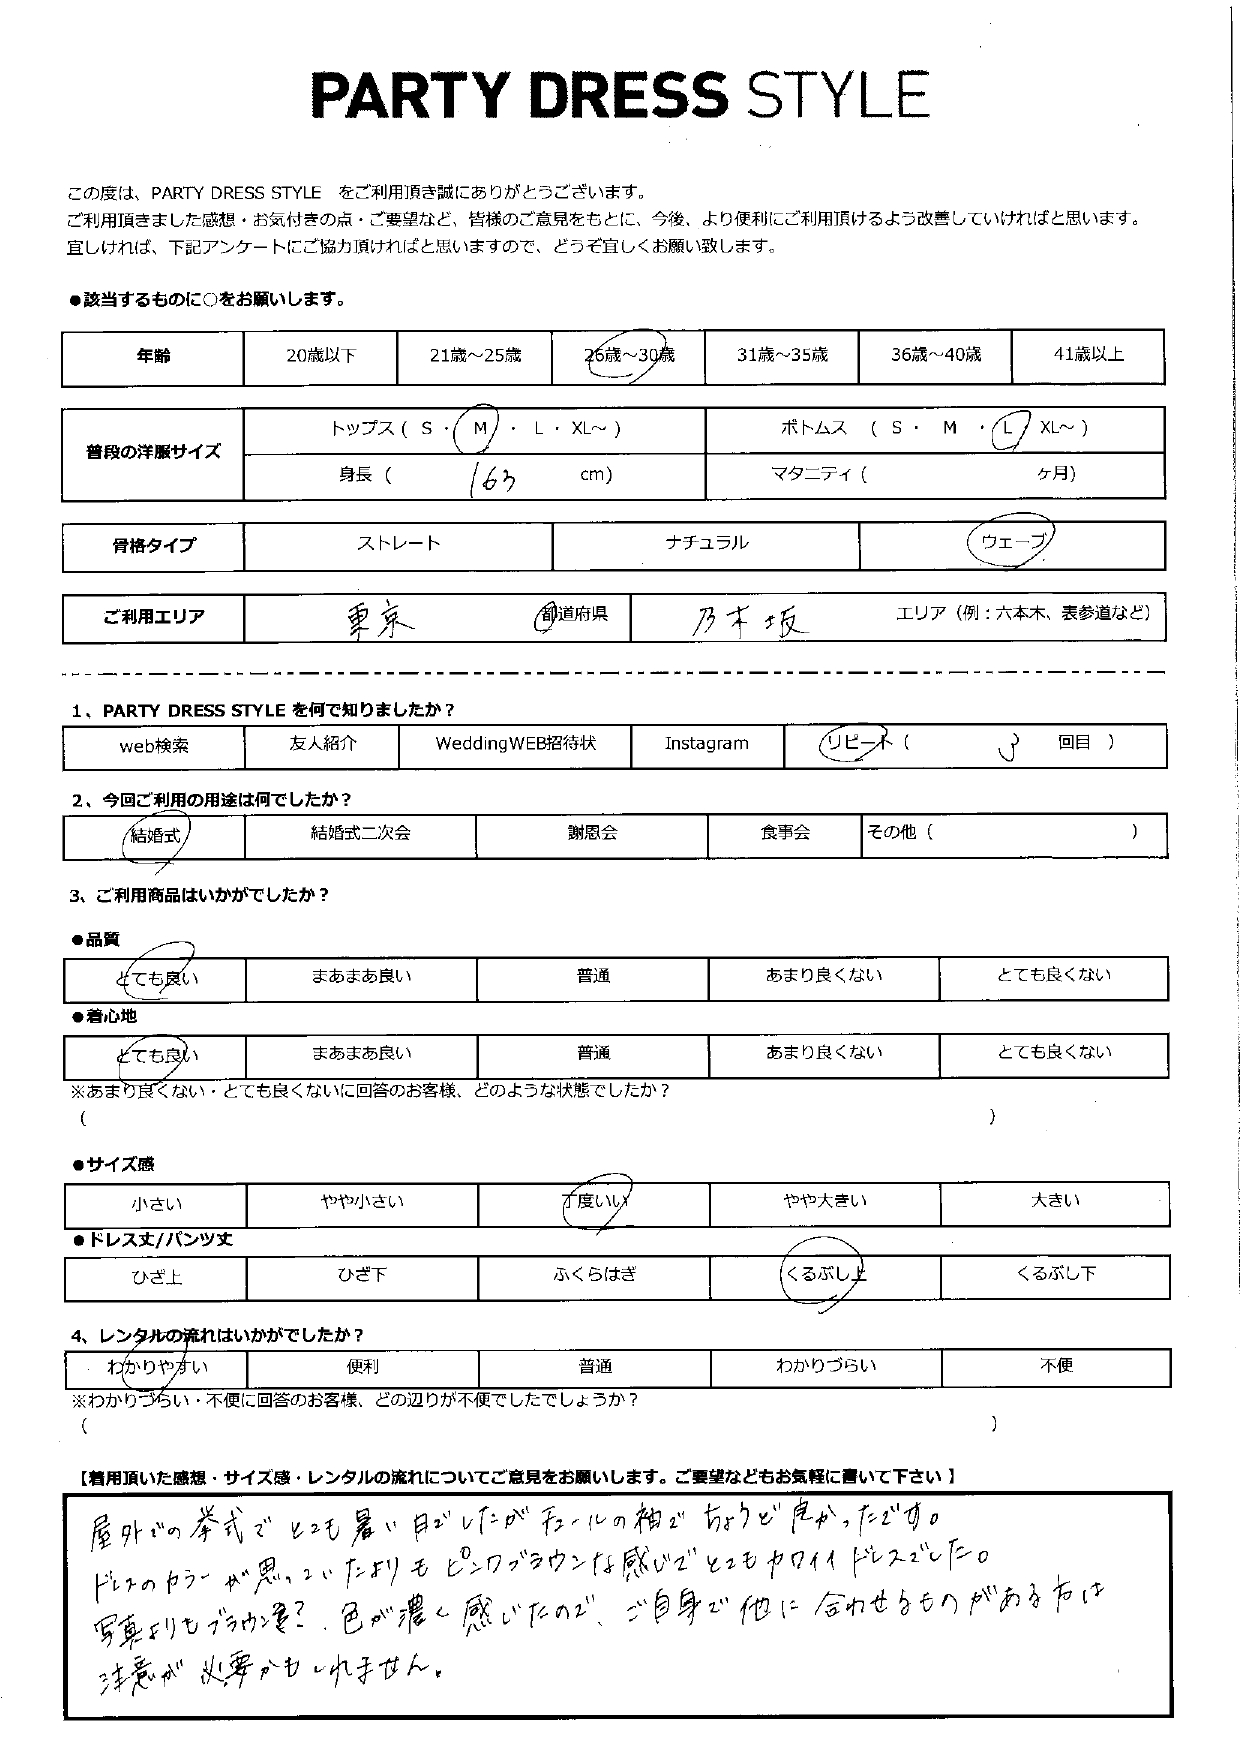 PARTY DRESS STYLE
この度は、PARTY DRESS STYLE をご利用頂き誠にありがとうございます。
ご利用頂きました感想・お気付きの点・ご要望など、皆様のご意見をもとに、今後、より便利にご利用頂けるよう改善していければと思います。
宜しければ、下記アンケートにご協力頂ければと思いますので、どうぞ宜しくお願い致します。
●該当するものに○をお願いします。
年齢 20歳以下 21歳～25歳 26歳～30歳 31歳～35歳 36歳～40歳 41歳以上
普段の洋服サイズ トップス ( S ・ M ・ L ・ XL～ ) ボトムス ( S ・ M ・ L XL～ )
身長 ( 163 cm) マタニティ ( ヶ月)
骨格タイプ ストレート ナチュラル ウェーブ
ご利用エリア 東京 都道府県 乃木坂 エリア（例：六本木、表参道など）
1、PARTY DRESS STYLE を何で知りましたか？
web検索 友人紹介 WeddingWEB招待状 Instagram リピート ( 3 回目 )
2、今回ご利用の用途は何でしたか？
結婚式 結婚式二次会 謝恩会 食事会 その他 ( )
3、ご利用商品はいかがでしたか？
●品質
とても良い まあまあ良い 普通 あまり良くない とても良くない
●着心地
とても良い まあまあ良い 普通 あまり良くない とても良くない
※あまり良くない・とても良くないに回答のお客様、どのような状態でしたか？
( )
●サイズ感
小さい やや小さい 丁度いい やや大きい 大きい
●ドレス丈/パンツ丈
ひざ上 ひざ下 ふくらはぎ くるぶし上 くるぶし下
4、レンタルの流れはいかがでしたか？
わかりやすい 便利 普通 わかりづらい 不便
※わかりづらい・不便に回答のお客様、どの辺りが不便でしたでしょうか？
( )
【着用頂いた感想・サイズ感・レンタルの流れについてご意見をお願いします。ご要望などもお気軽に書いて下さい】
屋外での挙式でとても暑い日でしたがチュールの袖でちょうど良かったです。
ドレスのカラーが思っていたよりもピンクブラウンな感じでとてもカワイイドレスでした。
写真よりもブラウン？、色が濃く感じたので、ご自身で他に合わせるものがある方は
注意が必要かもしれません。